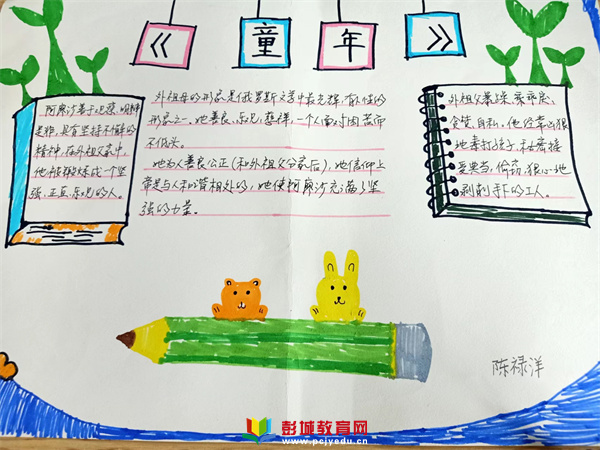 《童年》
阿廖沙善于思考，明辨
是非，具有坚持不懈的
精神，在外祖父家中，
他被锻炼成一个坚
强、正直、乐观的人。
外祖母的形象是俄罗斯文学中最光辉、有人性的
形象之一，她善良、乐观、慈祥，一个人面对困苦而
不低头。
她为人善良公正（和外祖父分家后），她信仰上
帝是与人和谐相处的，她使阿廖沙充满了坚
强的力量。
外祖父暴躁、乖戾、
贪婪、自私，他经常凶狠
地毒打孩子，和高接
受典当、偷窃，狠心地
剥削手下的工人。
陈禄洋
彭城教育网
www.pcjyedu.cn